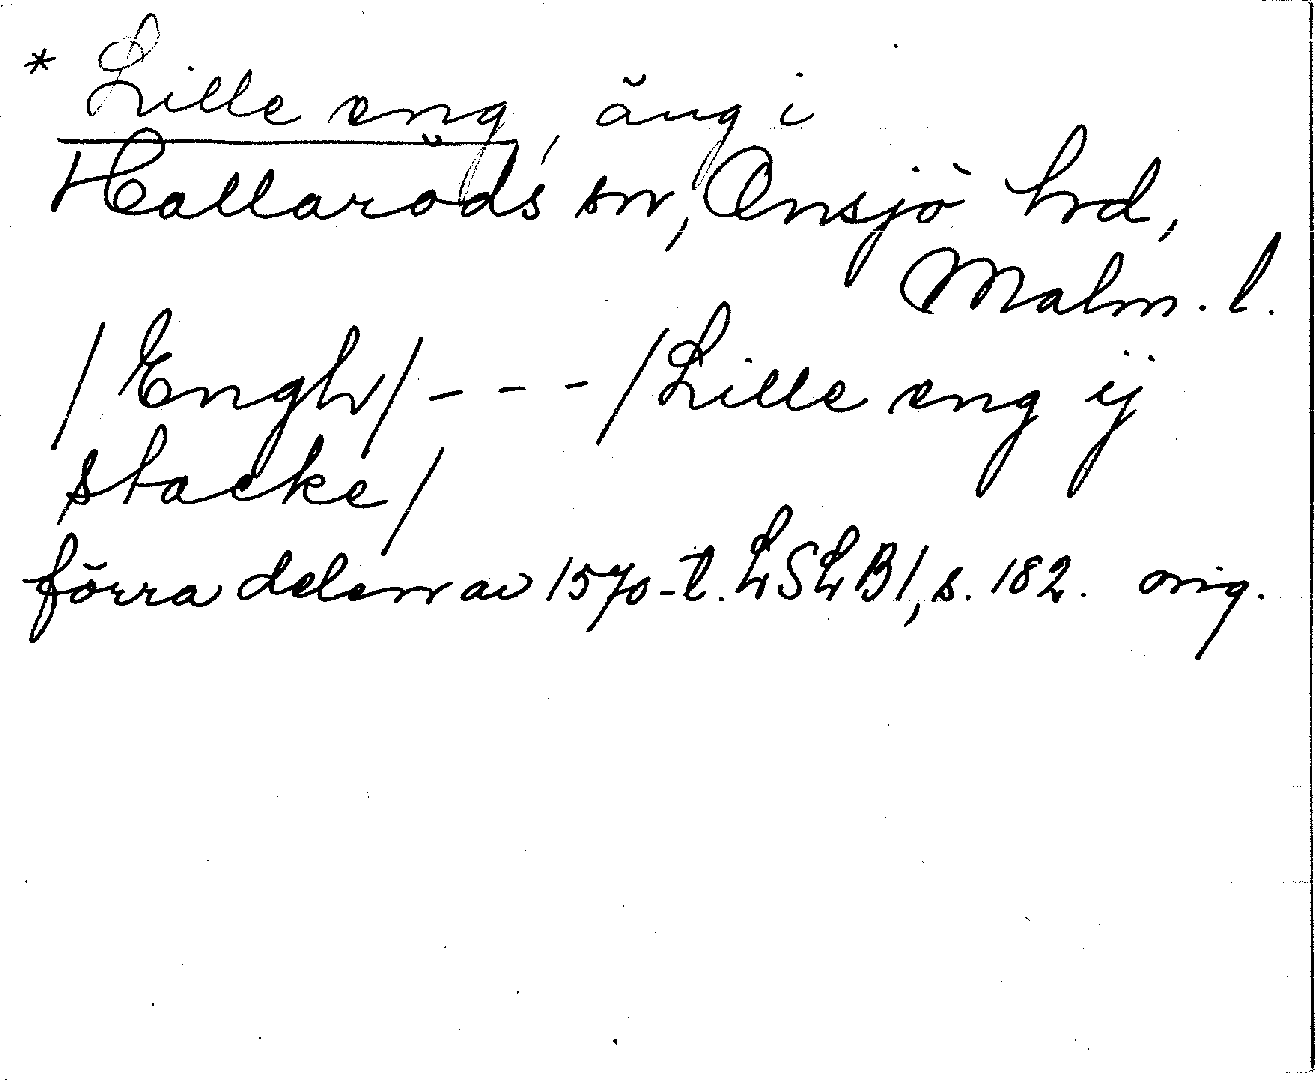 * Lille eng, äng i
Hallaröds sn, Onsjö hd,
Malm. l.
/Engh/ - - - /Lille eng ij
stacke/
förra delen av 1570-t. LSLB1, s. 182. orig.